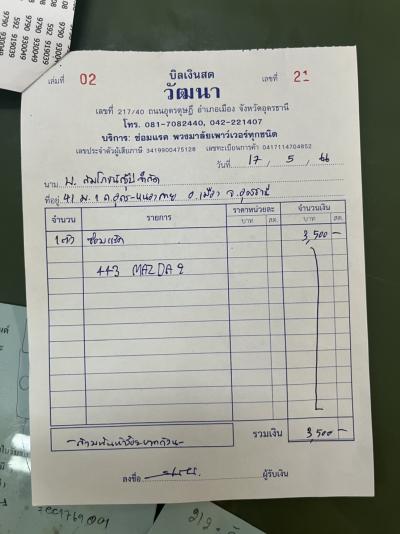 บิลเงินสด
เล่มที่ 02 เลขที่ 21
วัฒนา
เลขที่ 217/40 ถนนอุดรดุษฎี อำเภอเมือง จังหวัดอุดรธานี
โทร. 081-7082440, 042-221407
บริการ: ซ่อมแรค พวงมาลัยเพาว์เวอร์ทุกชนิด
เลขประจำตัวผู้เสียภาษี 3419900475128 เลขทะเบียนการค้า 0417114704852
วันที่ 17, 5, 66
นาม บ. จำกัด
ที่อยู่ 41 ม.1 ถ. อ.เมือง จ.อุดรธานี
จำนวน รายการ ราคาหน่วยละ จำนวนเงิน
บาท สต. บาท สต.
1 ตัว ซ่อมแร็ค 3,500 -
443 MAZDA 2
-สามพันห้าร้อยบาทถ้วน- รวมเงิน 3,500 -
ลงชื่อ ผู้รับเงิน